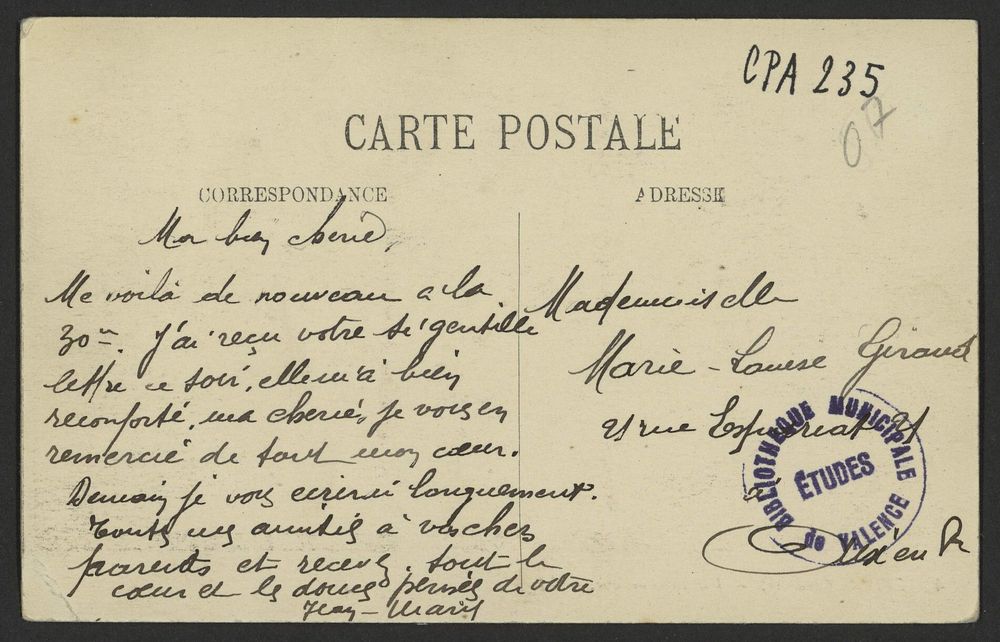 CPA 235
07
CARTE POSTALE
CORRESPONDANCE
ADRESSE
Ma bien cherie,
Me voilà de nouveau a la
30ᵐ. J'ai reçu votre si gentille
lettre ce soir, elle m'a bien
reconforté, ma cherie, je vous en
remercie de tout mon cœur.
Demain je vous ecrirai longuement.
Toutes mes amitiés à vos chers
parents et recevez tout le
cœur et les douces pensées de votre
Jean-Marie
Mademoiselle
Marie-Louise Giraud
rue Espariat
Aix en P
BIBLIOTHEQUE MUNICIPALE
ÉTUDES
de VALENCE